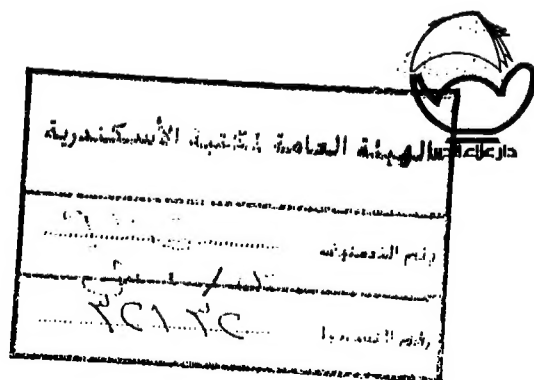 دار علاء الدين
الهيئة العامة لمكتبة الأسكندرية
رقم التصنيف
رقم التسجيل ٣٢١٣٢